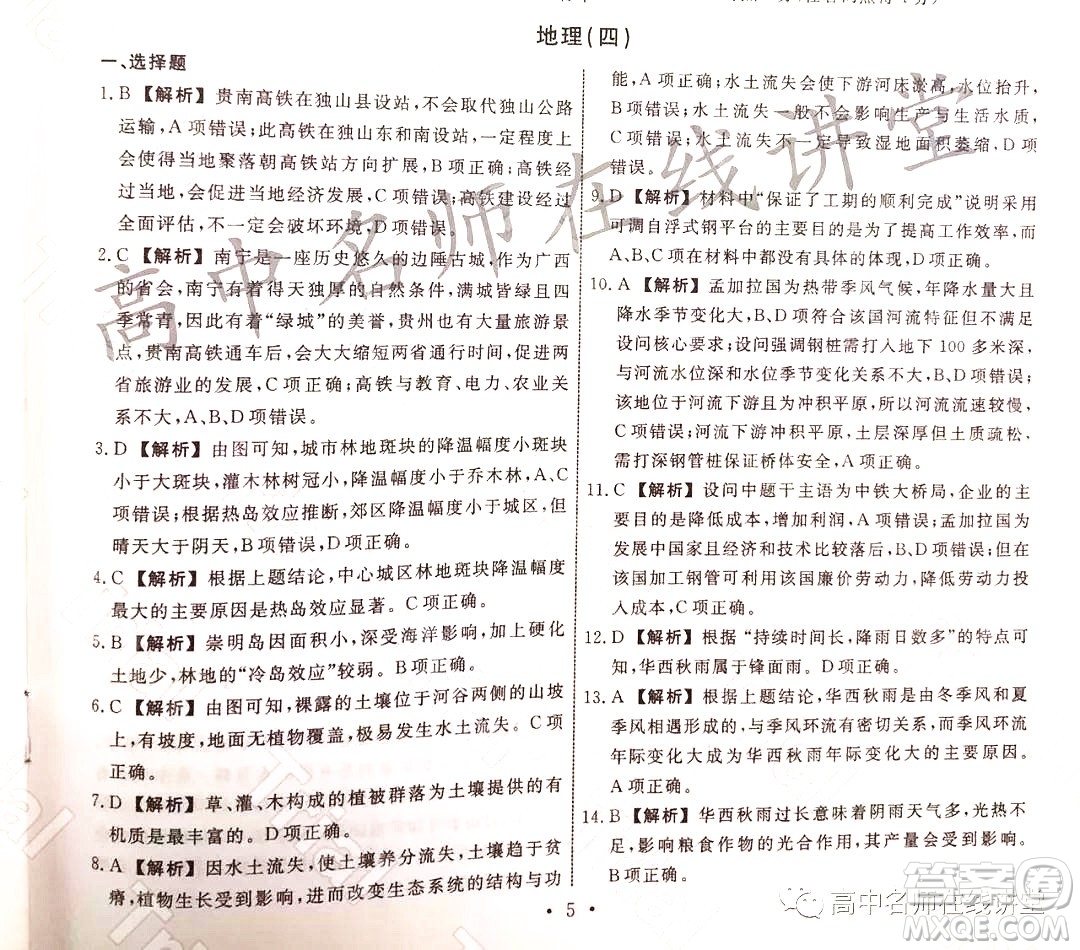 地理(四)
一、选择题
1. B 【解析】 贵南高铁在独山县设站,不会取代独山公路
运输,A项错误;此高铁在独山东和南设站,一定程度上
会使得当地聚落朝高铁站方向扩展,B项正确;高铁经
过当地,会促进当地经济发展,C项错误;高铁建设经过
全面评估,不一定会破坏环境,D项错误。
2. C 【解析】 南宁是一座历史悠久的边陲古城,作为广西
的省会,南宁有着得天独厚的自然条件,满城皆绿且四
季常青,因此有着“绿城”的美誉,贵州也有大量旅游景
点,贵南高铁通车后,会大大缩短两省通行时间,促进两
省旅游业的发展,C项正确;高铁与教育、电力、农业关系
不大,A、B、D项错误。
3. D 【解析】 由图可知,城市林地斑块的降温幅度小斑块
小于大斑块,灌木林树冠小,降温幅度小于乔木林,A、C
项错误;根据热岛效应推断,郊区降温幅度小于城区,但
晴天大于阴天,B项错误,D项正确。
4. C 【解析】 根据上题结论,中心城区林地斑块降温幅度
最大的主要原因是热岛效应显著。C项正确。
5. B 【解析】 崇明岛因面积小,深受海洋影响,加上硬化
土地少,林地的“冷岛效应”较弱。B项正确。
6. C 【解析】 由图可知,裸露的土壤位于河谷两侧的山坡
上,有坡度,地面无植物覆盖,极易发生水土流失。C项
正确。
7. D 【解析】 草、灌、木构成的植被群落为土壤提供的有
机质是最丰富的。D项正确。
8. A 【解析】 因水土流失,使土壤养分流失,土壤趋于贫
瘠,植物生长受到影响,进而改变生态系统的结构与功
能,A项正确;水土流失会使下游河床淤高,水位抬升,
B项错误;水土流失不会影响生产与生活水质,
C项错误;水土流失不一定导致湿地面积萎缩,D项
错误。
9. D 【解析】 材料中“保证了工期的顺利完成”说明采用
可调自浮式钢平台的目的是为了提高工作效率,而
A、B、C项在材料中都没有提及,D项正确。
10. A 【解析】 孟加拉国为热带季风气候,年降水量大且
降水季节变化大,B、D项符合该国河流特征但不满足
设问核心要求;设问强调钢桩需打入地下100多米深,
与河流水位深和水位季节变化关系不大,B、D项错误;
该地位于河流下游且为冲积平原,所以河流流速较慢,
C项错误;河流下游冲积平原,土层深厚但土质疏松,
需打深钢管桩保证桥体安全,A项正确。
11. C 【解析】 设问中题干主语为中铁大桥局,企业的主
要目的是降低成本,增加利润,A项错误;孟加拉国为
发展中国家且经济和技术比较落后,B、D项错误;在
该国加工钢管可利用该国廉价劳动力,降低劳动力
投入成本,C项正确。
12. D 【解析】 根据“持续时间长,降雨日数多”的特点可
知,华西秋雨属于锋面雨。D项正确。
13. A 【解析】 根据上题结论,华西秋雨是由冬季风和夏
季风相遇形成的,与季风环流有密切关系,而季风环流
年际变化大成为华西秋雨年际变化大的主要原因。
A项正确。
14. B 【解析】 华西秋雨过长意味着阴雨天气多,光热不
足,影响粮食作物的光合作用,其产量会受到影响。
B项正确。
• 5 •
高中名师在线讲堂
高中名师在线讲堂
答案圈
MXQE.COM
Trial